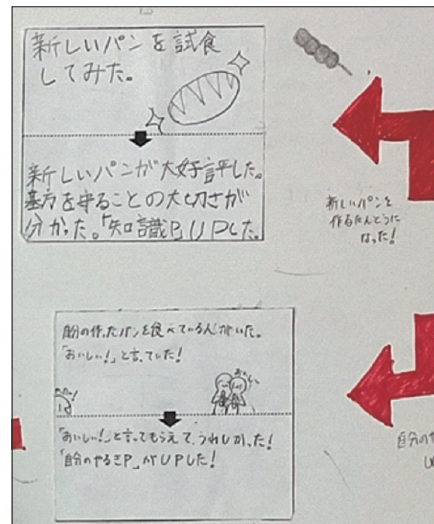 新しいパンを試食
してみた。
新しいパンが大好評した。
基方を守ることの大切さが
分かった。「知識P」UPした。
新しいパンを
作るたんとうに
なった!
自分の作ったパンを食べている人がいた。
「おいしい!」と言っていた!
「おいしい!」と言ってもらえて、うれしかった!
「自分のやるきP」がUPした!
自分の